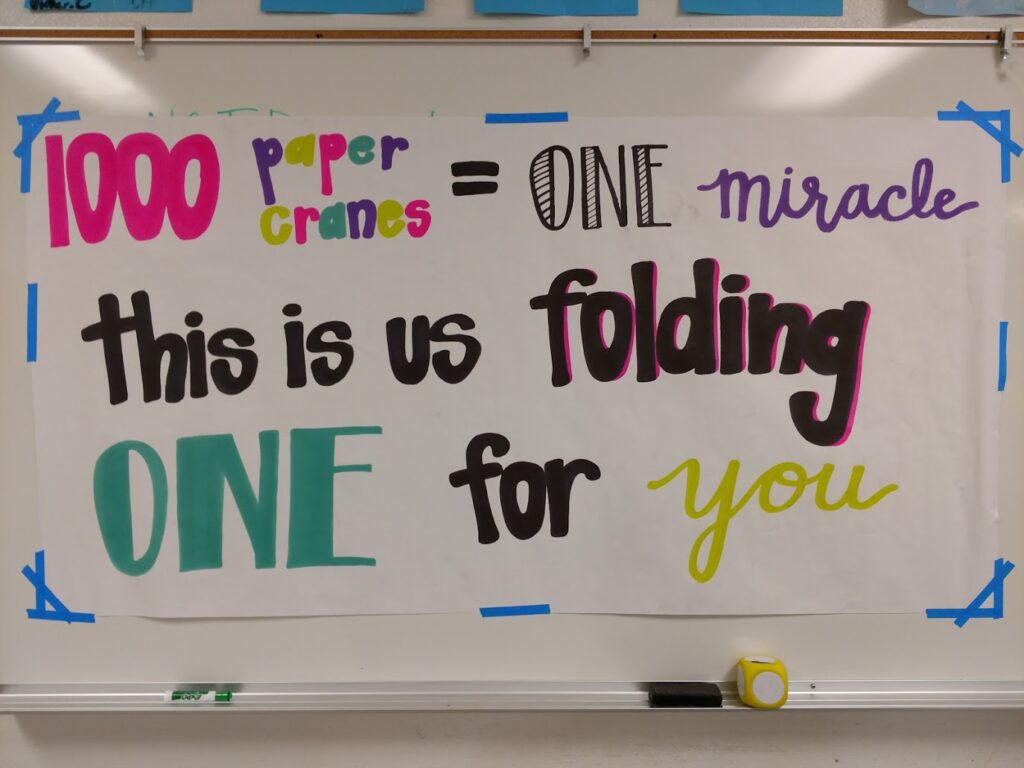 1000 paper cranes = ONE miracle
this is us folding
ONE for you